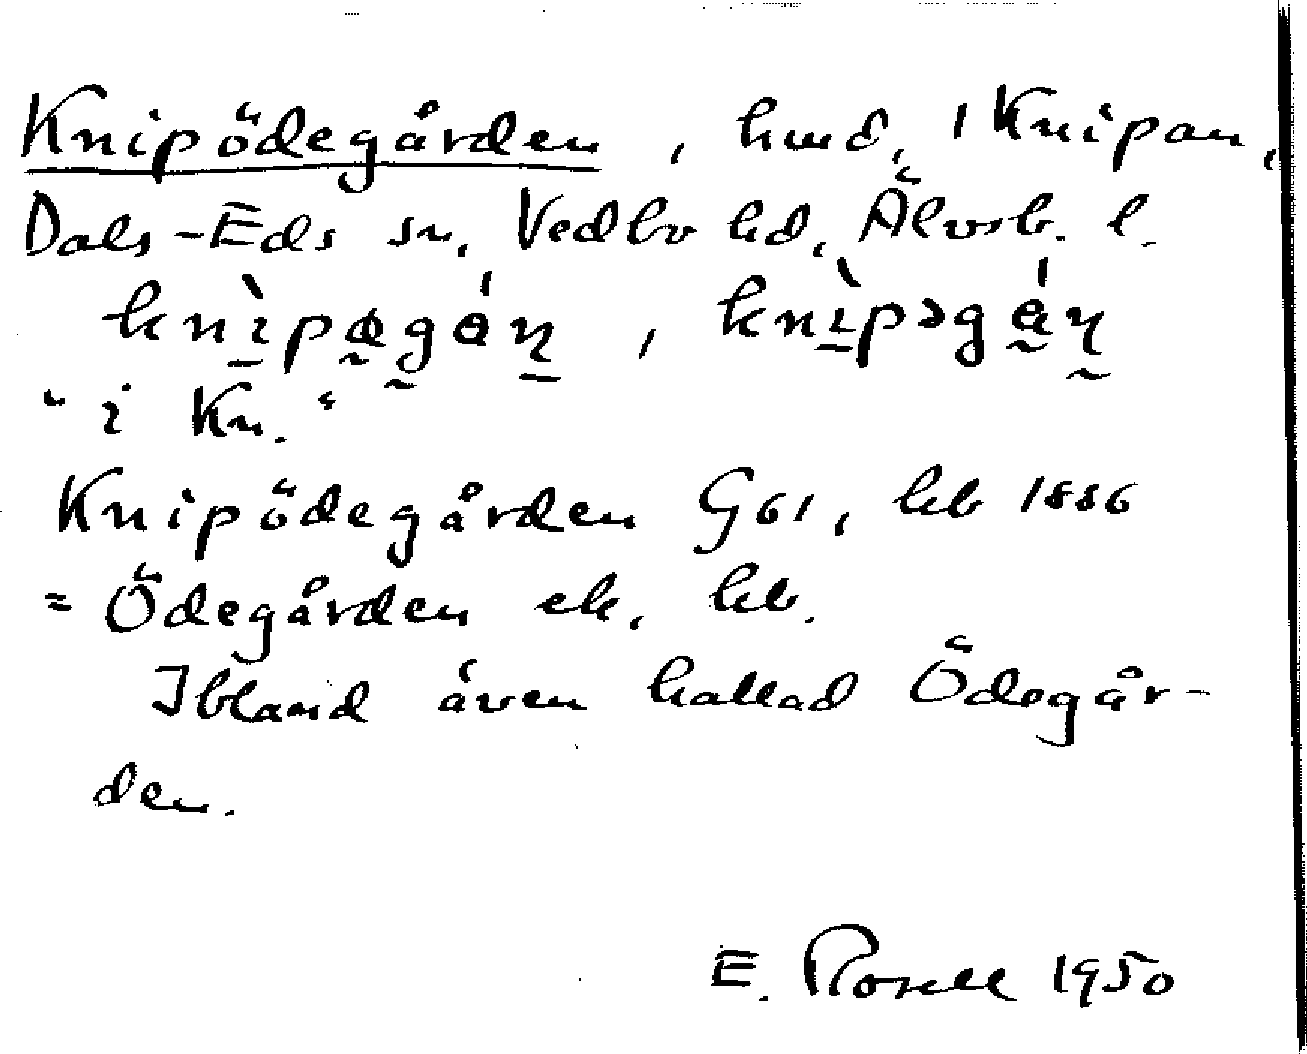 Knipödegården, hmd, 1 Knipan,
Dals-Eds sn, Vedbo hd, Älvsb. l.
knìpøgán, knìpəgán
"i Kn."
Knipödegården G61, kb 1886
= Ödegården ek. kb.
Ibland även kallad Ödegår-
den.
E. Rosell 1950